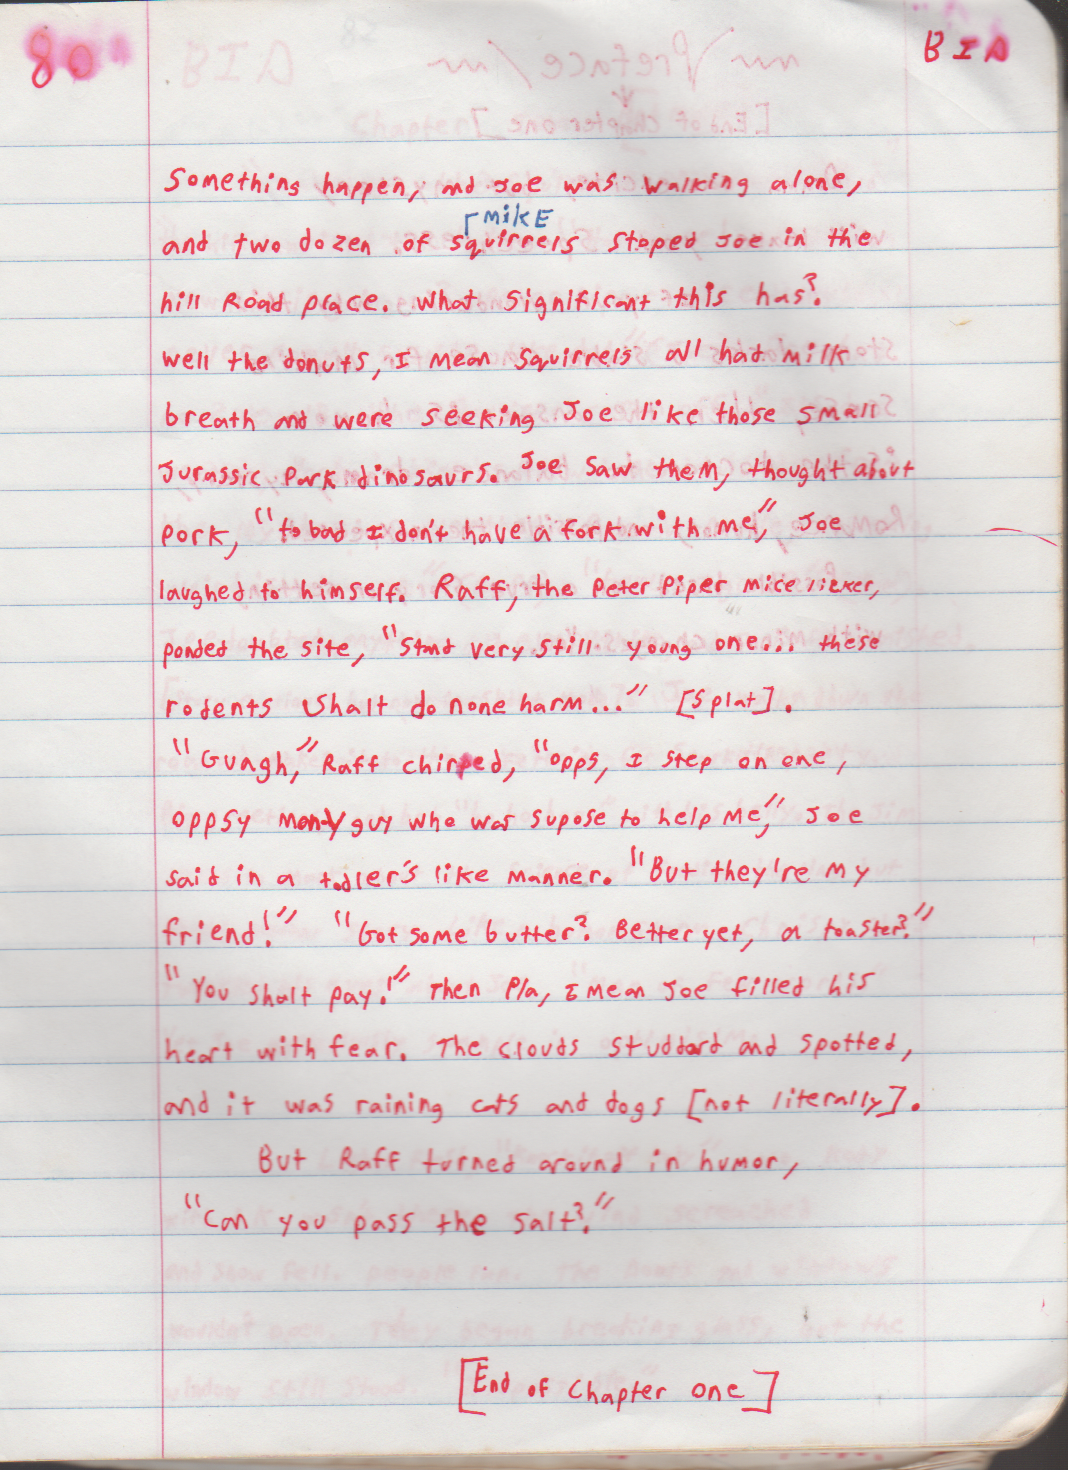 80 BID
Something happen, and Joe was walking alone,
[MIKE
and two dozen of squirrels stoped Joe in the
hill Road place. What significant this has?
Well the donuts, I mean squirrels all had milk
breath and were seeking Joe like those small
Jurassic Park dinosaurs. Joe saw them, thought about
pork, "to bad I don't have a fork with me," Joe
laughed to himself. Raff, the Peter Piper mice licker,
ponded the site, "Stand very still young one... these
rodents shalt do none harm..." [Splat].
"Guagh," Raff chirped, "opps, I step on one,
oppsy guy who was supose to help me," Joe
said in a todler's like manner. "But they're my
friend!" "Got some butter? Better yet, a toaster?"
"You shalt pay!" Then Pla, I mean Joe filled his
heart with fear. The clouds studdard and spotted,
and it was raining cats and dogs [not literally].
But Raff turned around in humor,
"Can you pass the salt?"
[End of Chapter one]